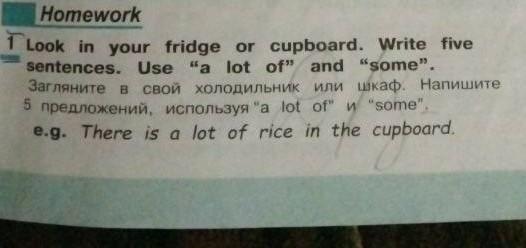 Homework
1 Look in your fridge or cupboard. Write five
sentences. Use “a lot of” and “some”.
Загляните в свой холодильник или шкаф. Напишите
5 предложений, используя “a lot of” и “some”.
e.g. There is a lot of rice in the cupboard.